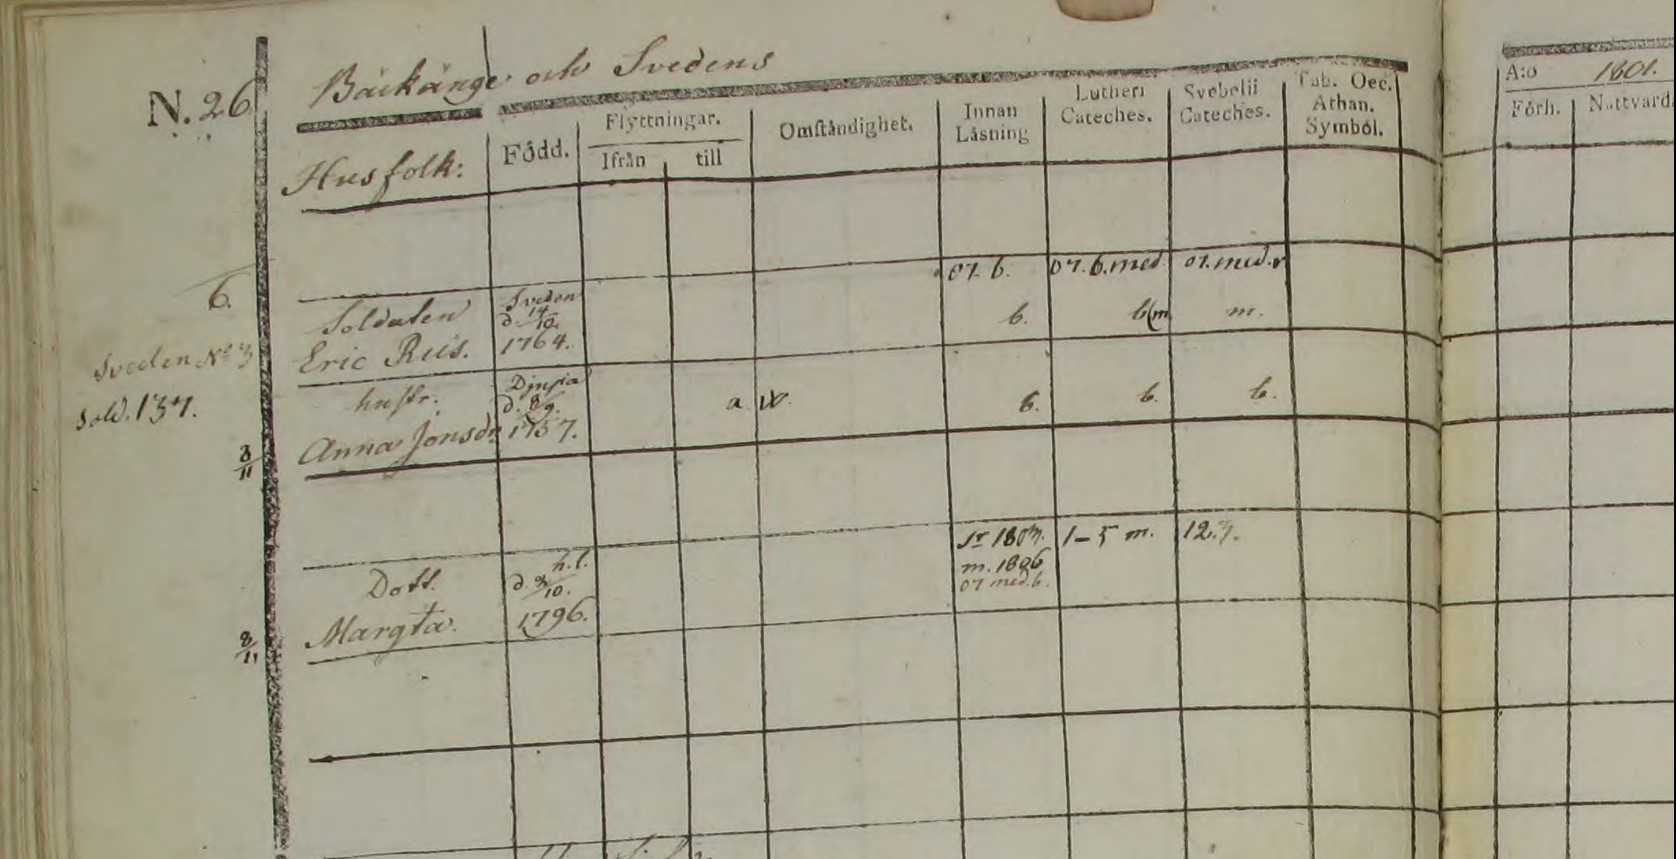 N. 26
Bäckänge och Svedens
A:o 1801.
Husfolk:
Född.
Flyttningar.
Ifrån till
Omständighet.
Innan
Läsning
Lutheri
Cateches.
Svebelii
Cateches.
Tab. Oec.
Athan.
Symból.
Förh. Nattvard
07. b. 07. b. med 07. med.
6.
Soldaten
Eric Reis.
Sveden
d. 14/10.
1764.
b. b(m m.
Sveden No 3
Sold. 137.
hustr.
Anna Jonsdr
d. 8/9.
1757.
a w. b. b. b.
8/11
Dott.
Margta.
h. l.
d. 3/10.
1796.
m. 1806
07 med. b.
1-5 m. 12.
8/11